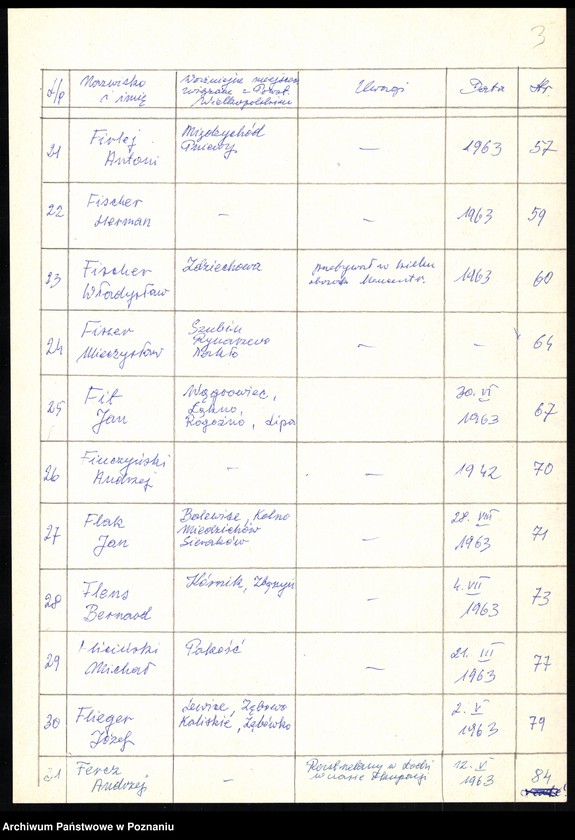 3
L/p Nazwisko i imię Ważniejsze miejscow. związane z Powst. Wielkopolskim Uwagi Data Str.
21 Firlej Antoni Międzychód Pniewy — 1963 57
22 Fischer Herman — — 1963 59
23 Fischer Władysław Zdziechowa przebywał w wielu obozach koncentr. 1963 60
24 Fiszer Mieczysław Szubin Rynarzewo Nakło — — 64
25 Fit Jan Wągrowiec, Łekno, Rogoźno, Lipa 30. VI 1963 67
26 Andrzej — — 1942 70
27 Flak Jan Bolewice, Kolno Miedzichów Sieraków — 28. VIII 1963 71
28 Flens Bernard Kórnik, Zbąszyń — 4. VII 1963 73
29 Michał Pakość — 21. III 1963 77
30 Flieger Józef Lewice, Zębowo Kaliskie, 2. V 1963 79
31 Fercz Andrzej — Rozstrzelany w Łodzi w czasie okupacji 12. V 1963 84
Archiwum Państwowe w Poznaniu